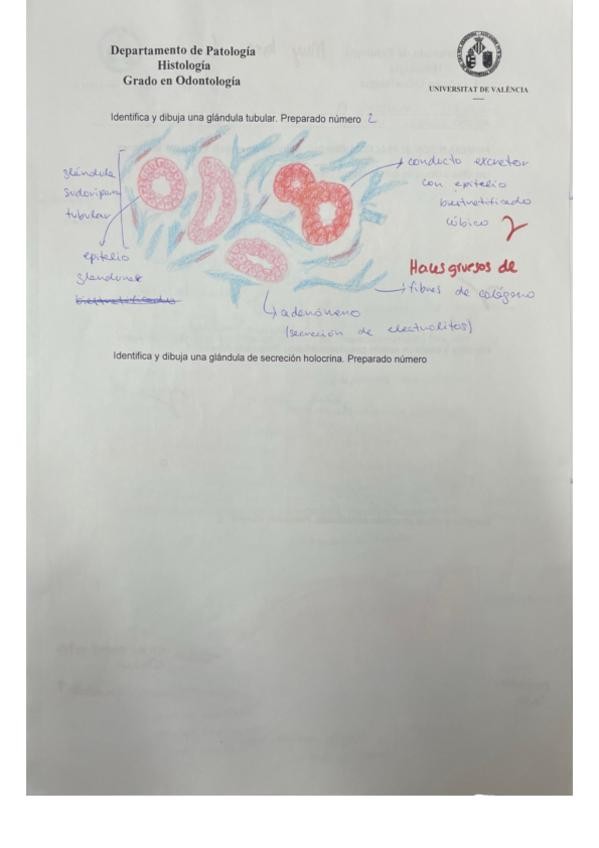 Departamento de Patología
Histología
Grado en Odontología
UNIVERSITAT DE VALÈNCIA
Identifica y dibuja una glándula tubular. Preparado número 2
glándula
sudorípara
tubular
epitelio
glandular
biestratificado
conducto excretor
con epitelio
biestratificado
cúbico
Haces gruesos de
fibras de colágeno
adenómero
(secreción de electrolitos)
Identifica y dibuja una glándula de secreción holocrina. Preparado número